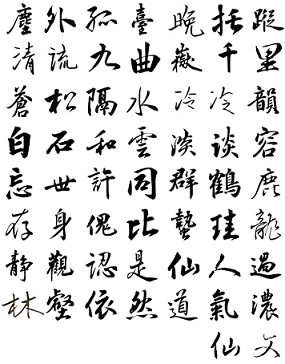 塵外孤臺晚托蹤
清流九曲嶽千重
蒼松隔水冷冷韻
白石和雲淡談容
忘世許同群鶴鹿
存身傀比蟄珪龍
靜觀認是仙人過
林壑依然道氣濃
仙文